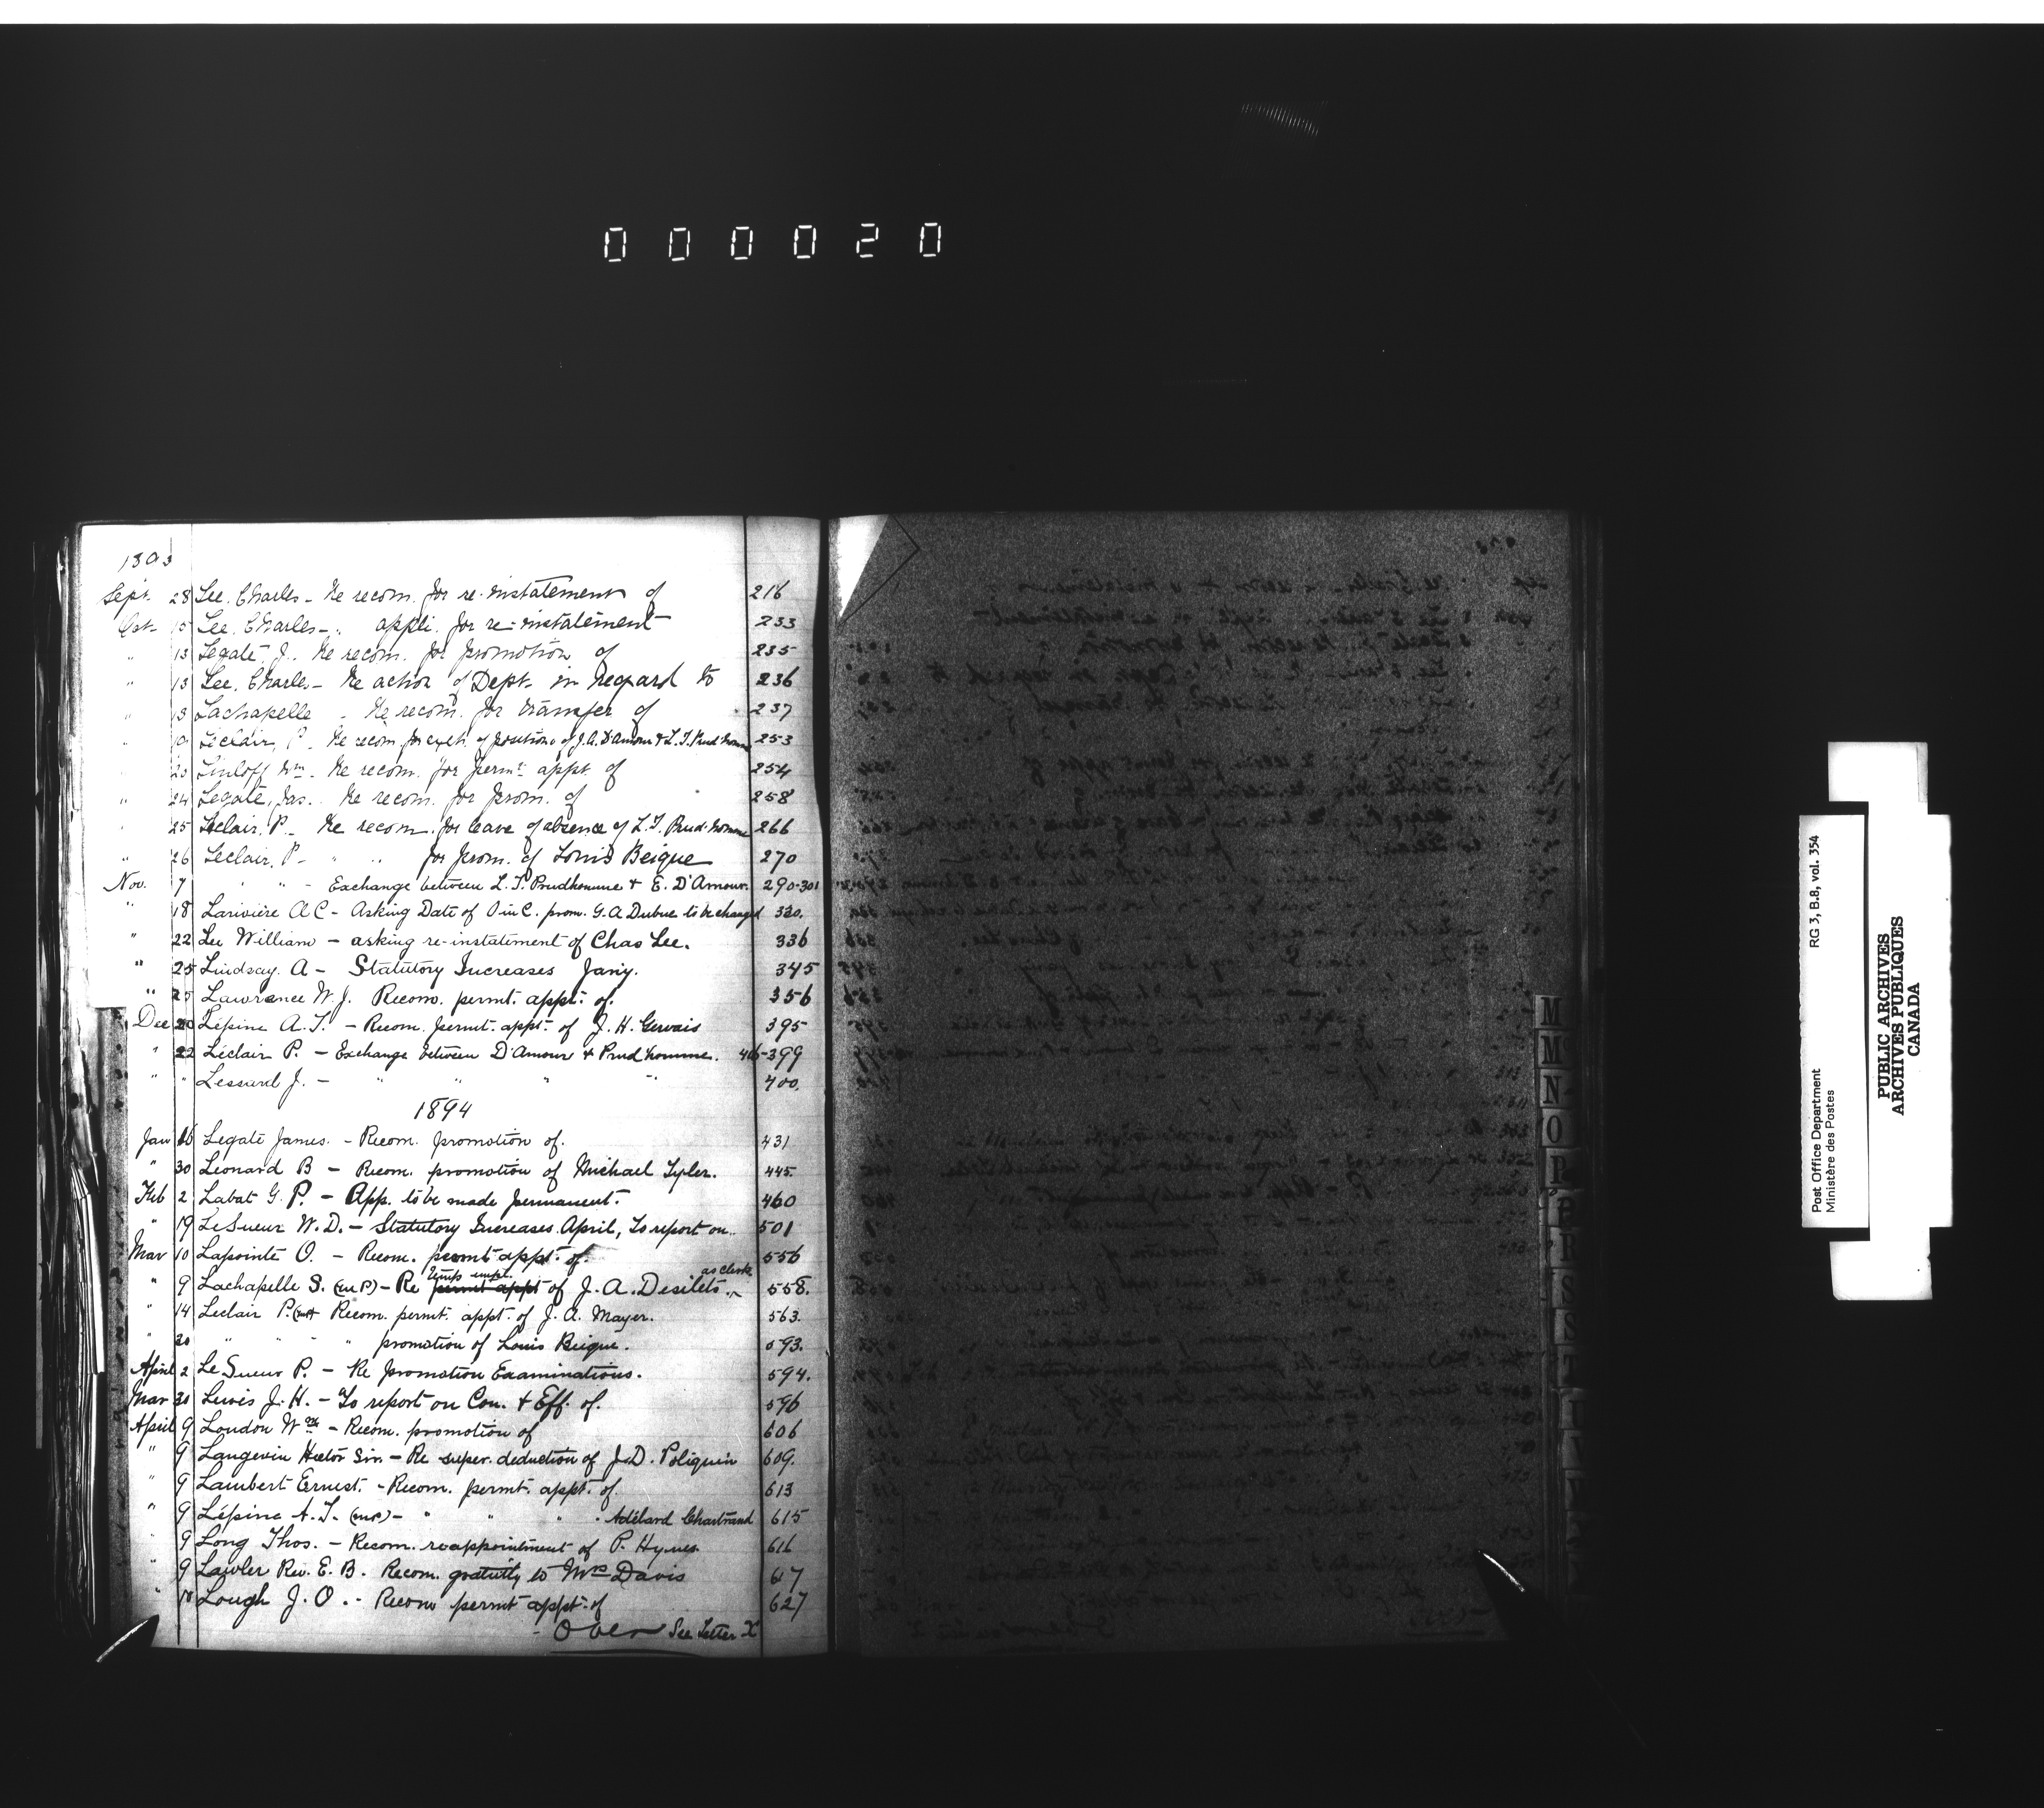 000020
1893
Sept. 28 Lee. Charles - Re recom. for re-instatement of 216
Oct. Lee. Charles - " appli. for re-instatement 233
" 13 Legate. J. Re recom. for promotion of 235
" 13 Lee. Charles - Re action of Dept. in regard to 236
" 13 Lachapelle - Re recom. for transfer of 237
" Leclair, P. Re recom. for exch. of positions of J.A. D'Amour & L.T. Prudhomme 253
Wm. Re recom. for permt. appt. of 254
" 24 Legate, Jas. Re recom. for prom. of 258
25 Leclair. P. Re recom. for leave of absence of L.T. Prudhomme 266
" 26 Leclair. P. - " " for prom. of Louis Beique 270
Nov. 7 " " - Exchange between L.T. Prudhomme & E. D'Amour. 290-301
" 18 Lariviere A C - Asking Date of O in C. prom. G. A Dubuc to be changed 320.
" 22 Lee William - asking re-instatement of Chas Lee. 336
" 25 Lindsay. A - Statutory Increases Jan'y. 345
" 25 Lawrence W. J. Recom. permt. appt. of. 356
Dec 20 Lépine A. T. - Recom. permt. appt. of J. H. Gervais 395
" 22 Léclair P. - Exchange between D'Amour & Prudhomme. -399
" " Lessard J. - " " " " 400.
1894
Jan 16 Legate James. - Recom. promotion of. 431
" 30 Leonard B - Recom. promotion of Michael Tyler. 445.
Feb 2 Labat G. P. - App. to be made permanent. 460
" 19 LeSueur W. D. - Statutory Increases April, To report on.. 501
Mar 10 Lapointe O. - Recom. permt appt. of. 556
" 9 Lachapelle S. (M.P.) - Re permt appt temp empt. of J. A. Desilets as clerk. 558.
" 14 Leclair P. Recom. permt. appt. of J. A. Mayer. 563.
" 20 " " " " promotion of Louis Beique. 593.
April 2 Le Sueur P. - Re Promotion Examinations. 594.
Mar 30 Lewis J. H. - To report on Con. & Eff. of. 596
April 9 Loudon Wm - Recom. promotion of 606
" 9 Langevin Hector Sir. - Re super. deduction of J.D. Poliquin 609.
" 9 Lambert Ernest. - Recom. permt. appt. of. 613
" 9 Lépine A. T. (M.P.) - " " " Adélard Chartrand 615
" 9 Long Thos. - Recom. reappointment of P. Hynes. 616
" 9 Lawler Rev. E. B. Recom. gratuity to Mrs Davis 617
" 18 Lough J. O. - Recom permt appt. of 627
- Over See Letter X
M
M
N
O
P
R
S
S
T
Post Office Department
Ministère des Postes
RG 3, B.8, vol. 354
PUBLIC ARCHIVES
ARCHIVES PUBLIQUES
CANADA